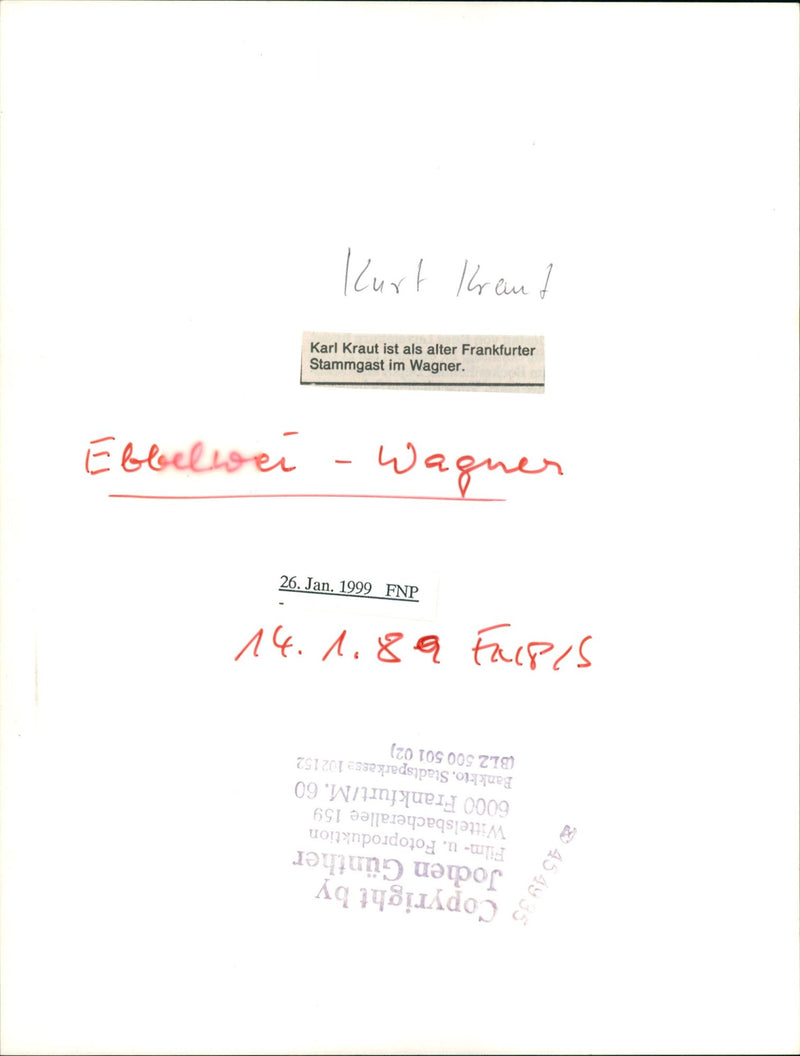 Kurt Kraut
Karl Kraut ist als alter Frankfurter
Stammgast im Wagner.
Ebbelwei - Wagner
26. Jan. 1999 FNP
-
14. 1. 89
Copyright by
Jochen Günther
Film- u. Fotoproduktion
Wittelsbacherallee 159
6000 Frankfurt/M. 60
Bankkto. Stadtsparkasse 102152
(BLZ 500 501 02)